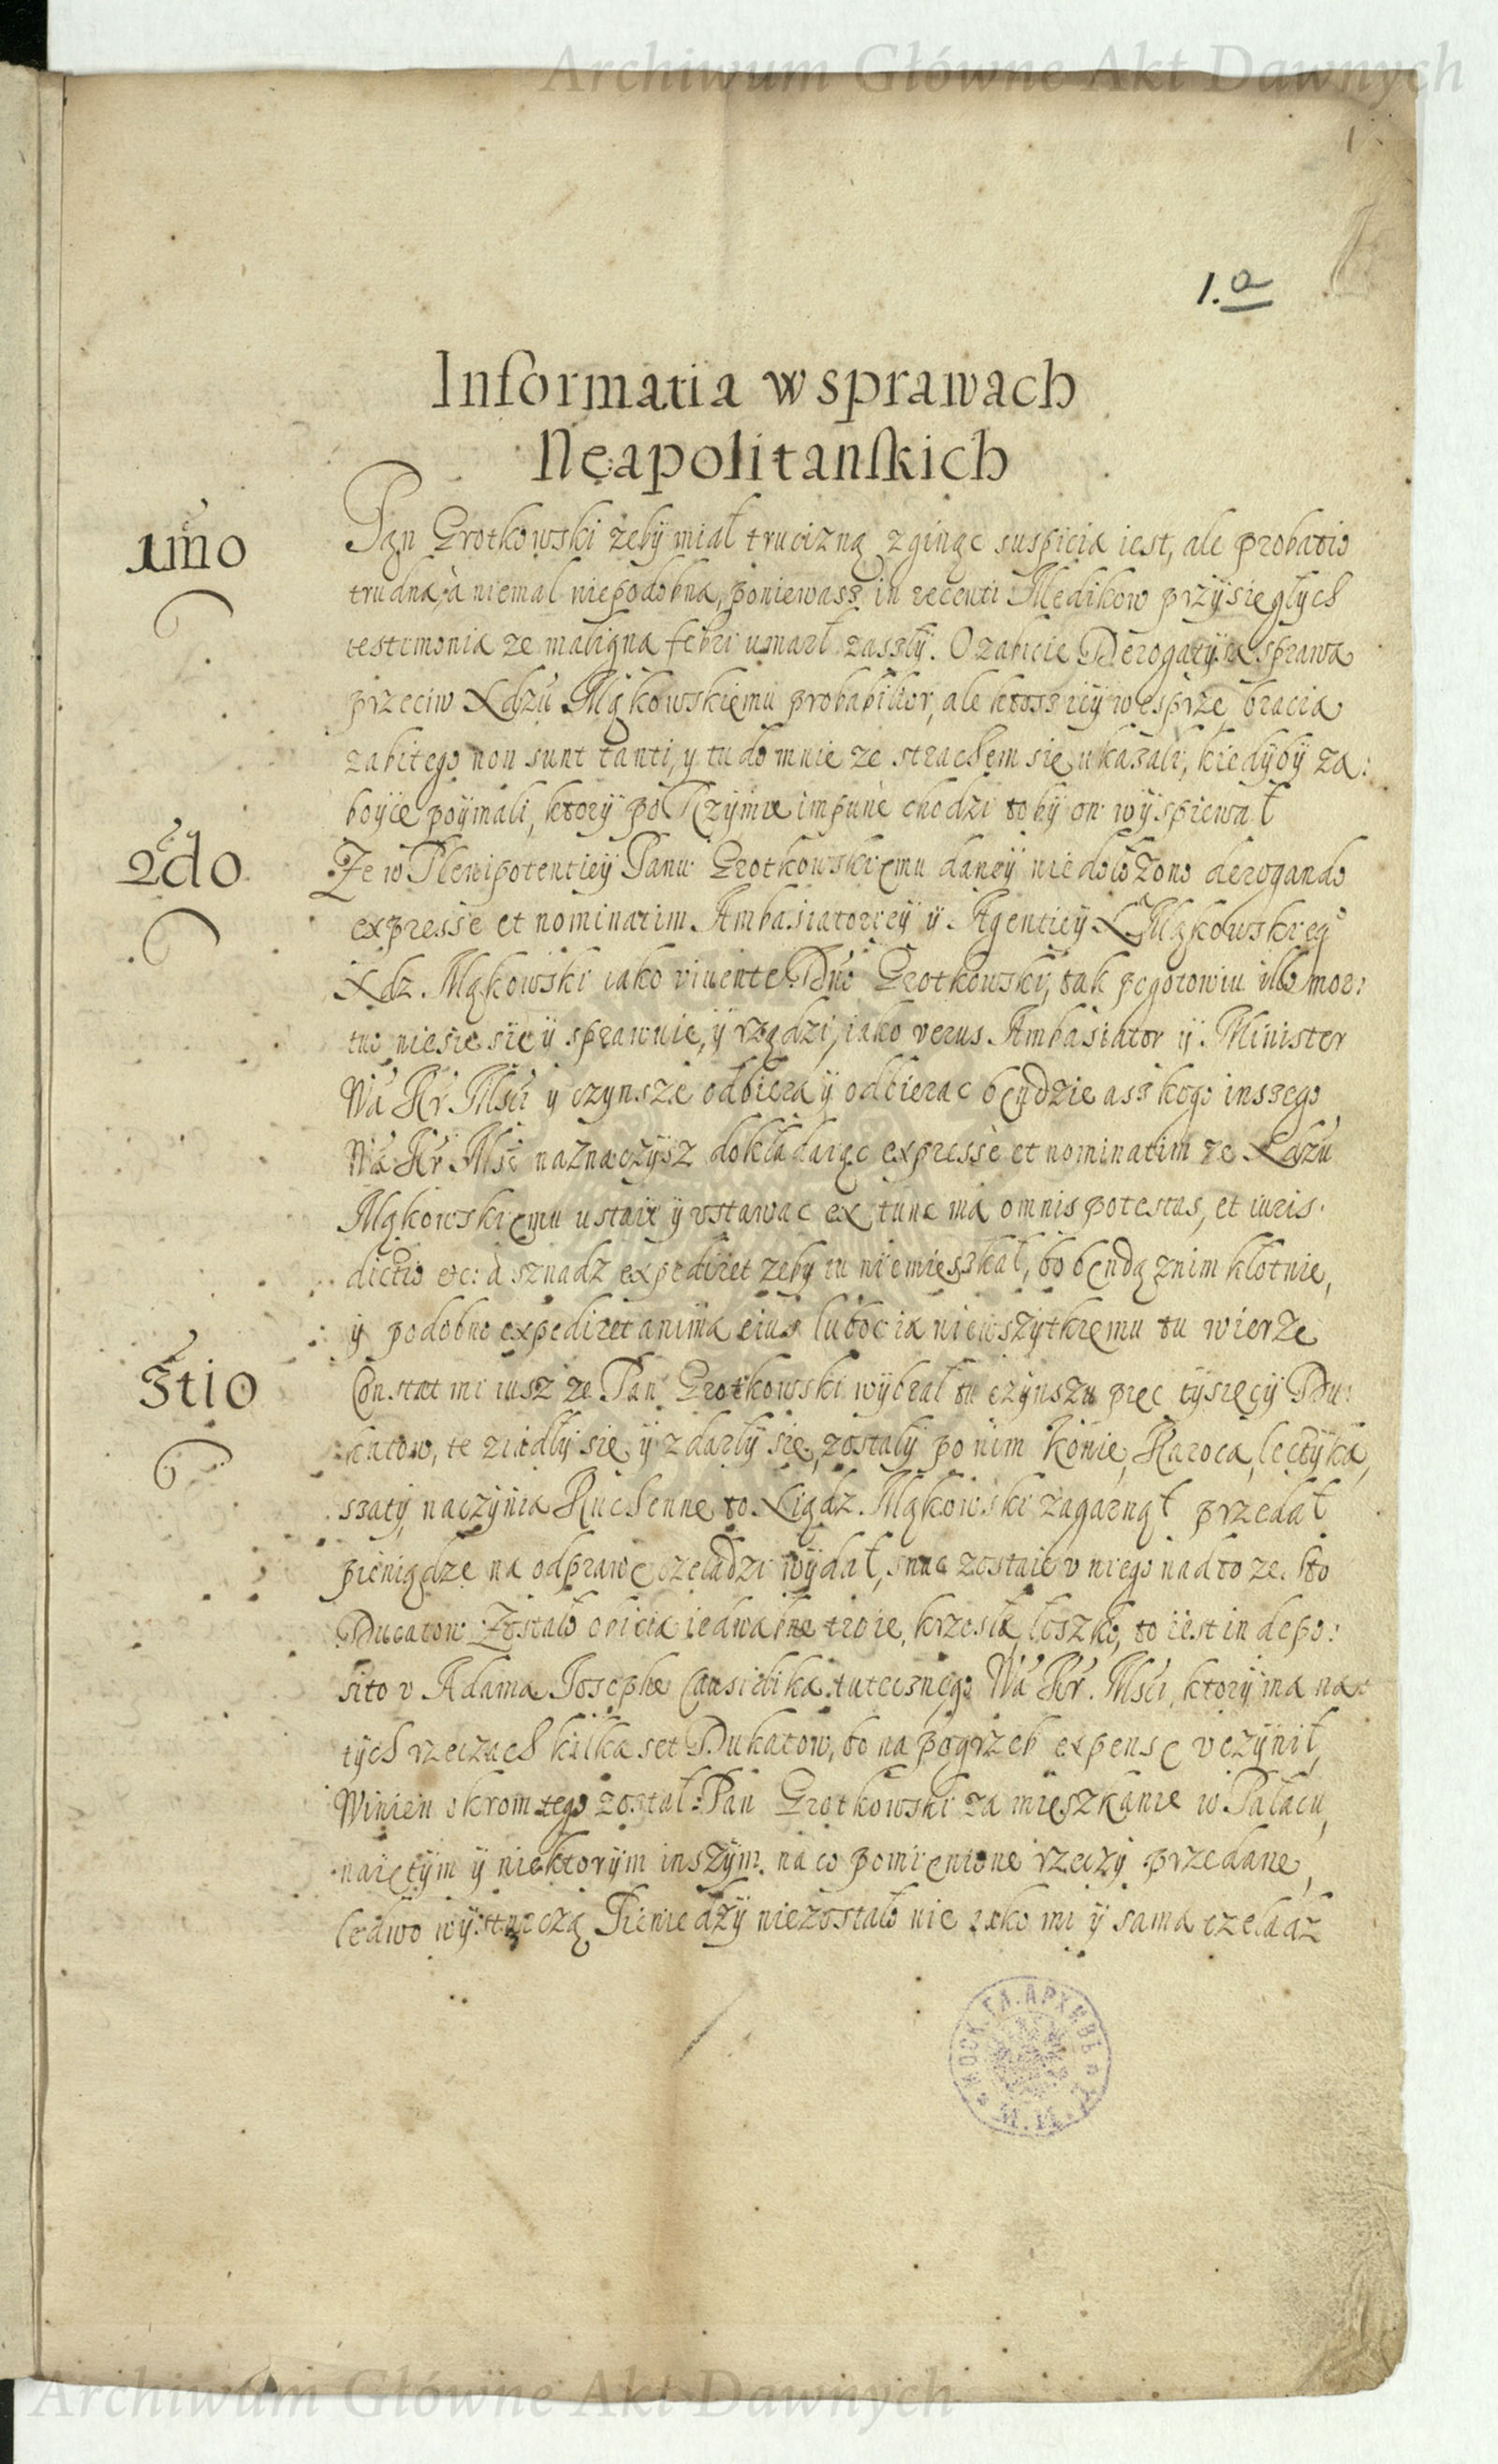 Archiwum Główne Akt Dawnych
1
1.a
Informatia w sprawach
Neapolitanskich
1mo
Pan Grotkowski żeby miał trucizną zginąc suspicia iest, ale probatio
trudna, à niemal niepodobna, poniewasz in recenti Medikow przysięgłych
testimonia ze maligna febri umarł zaszły. O zabicie Derogatijna sprawa
przeciw Xdzu Mąkowskiemu probabilior, ale ktosz iey wesprze, bracia
zabitego non sunt tanti, y tu do mnie ze strachem się ukazali, kiedyby za:
boyce poymali, ktory po Rzymie impunè chodzi toby on wyspiewał
2do
Ze w Plenipotentiey Panu Grotkowskiemu daney nie dołożono derogando
expresse et nominatim Ambasiatoriey y Agentiey X Mąkowskieg°
Xdz. Mąkowski iako viuente Dno Grotkowski, tak pogotowiu illo mor:
tuo niesie się y sprawnie, y rządzi, iako verus Ambasiator y Minister
Wa Kr Msci y czynsze odbiera y odbierac będzie asz kogo inszego
Wa Kr Msc naznaczysz dokładaiąc expressè et nominatim ze Xdzu
Mąkowskiemu ustaie y ustawac ex tunc ma omnis potestas, et iuris:
dictio etc: à sznadz expediret zeby tu niemieszkał, bo będą znim kłotnie,
y podobno expediret anima eius lubo cia niewszytkiemu tu wierze
3tio
Constat mi iusz ze Pan Grotkowski wybrał tu czynszu pięc tysięcy Du:
katow, te ziadły się y zdarły się, zostały po nim Konie, Karoca, lectyka,
szaty, naczynia Kuchenne to Xiądz. Mąkowski zagarnął przedał
pieniądze na odprawę czeladzi wydał, snac zostaie v niego nadto ze. sto
Ducatow Zostało obicia iedwabne troie, krzesła, łoszko, to iest in depo:
sito v Adama Josephe Causidika tutecznego Wa Kr. Msci, ktory ma na
tych rzeczach kilka set Dukatow, bo na pogrzeb expensę vczynił,
Winien okrom tego został Pan Grotkowski za mieszkanie w Pałacu,
naiętym y niektorym inszym. na co pomienione rzeczy przedane,
ledwo wystarczą Pieniedzy niezostało nic iako mi y sama czeladz
МОСК. ГЛ. АРХИВЪ М. И. Д.
Archiwum Główne Akt Dawnych